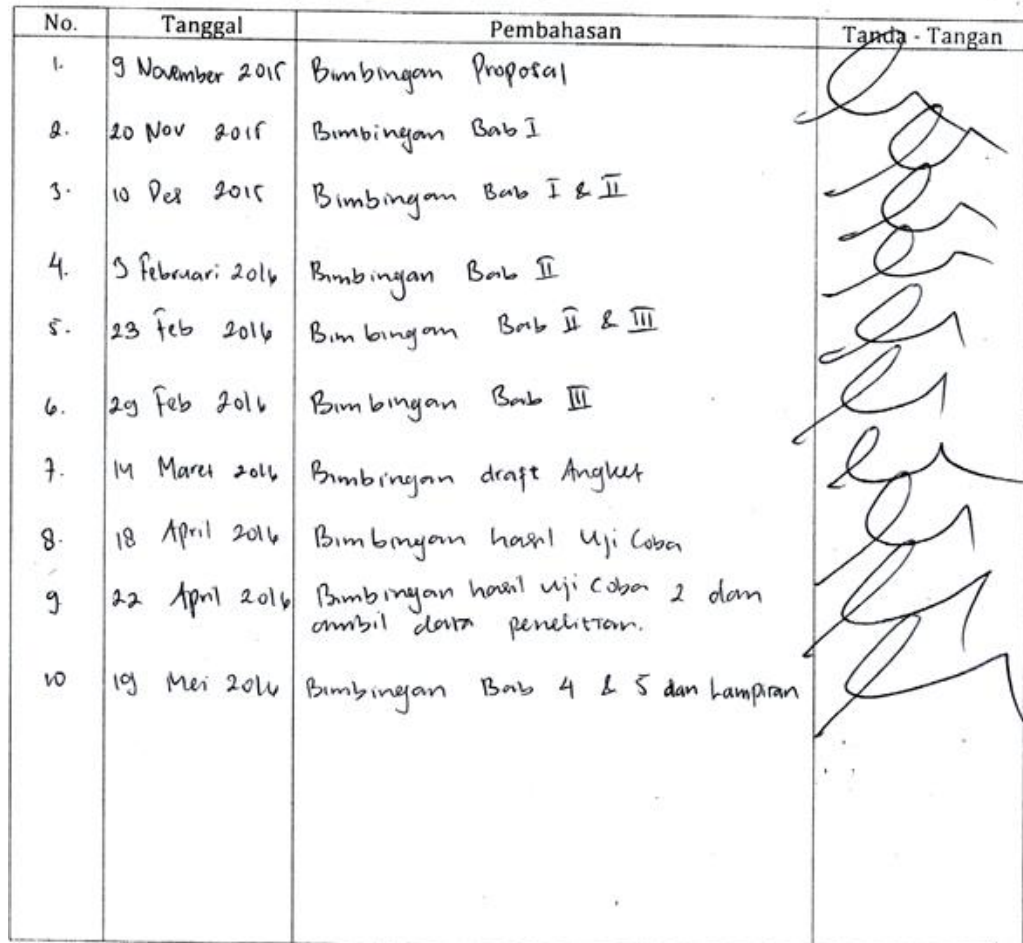 No. Tanggal Pembahasan Tanda - Tangan
1. 9 November 2015 Bimbingan Proposal
2. 20 Nov 2015 Bimbingan Bab I
3. 10 Des 2015 Bimbingan Bab I & II
4. 3 Februari 2016 Bimbingan Bab II
5. 23 Feb 2016 Bimbingan Bab II & III
6. 29 Feb 2016 Bimbingan Bab III
7. 14 Maret 2016 Bimbingan draft Angket
8. 18 April 2016 Bimbingan hasil Uji Coba
9 22 April 2016 Bimbingan hasil uji coba 2 dan
ambil data penelitian.
10 19 Mei 2016 Bimbingan Bab 4 & 5 dan Lampiran